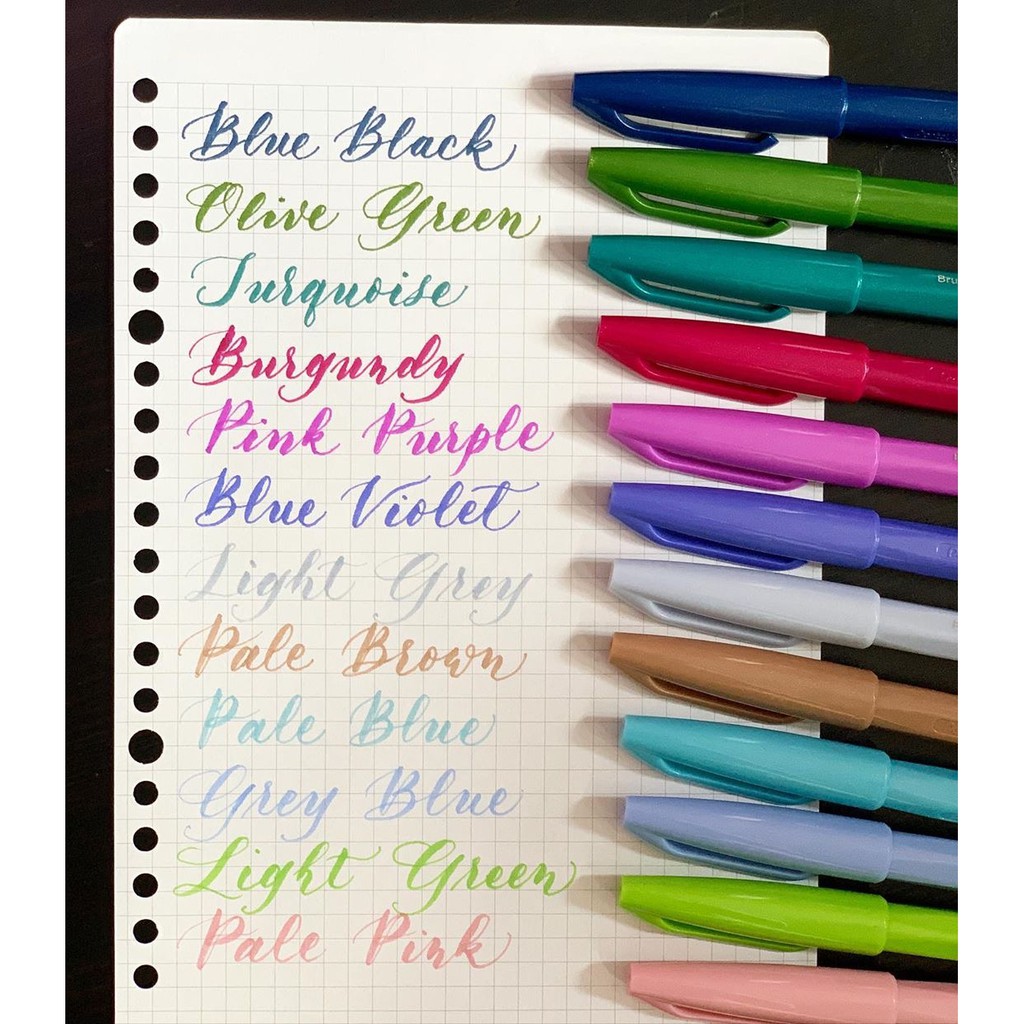 Blue Black
Olive Green
Turquoise
Burgundy
Pink Purple
Blue Violet
Light Grey
Pale Brown
Pale Blue
Grey Blue
Light Green
Pale Pink